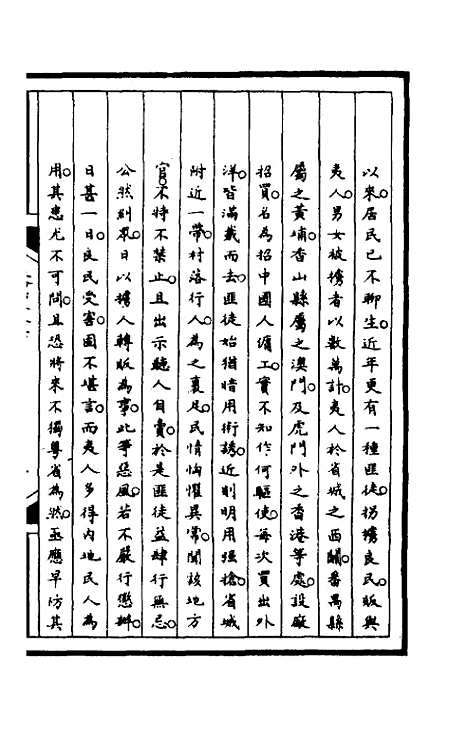 以來居民已不聊生。近年更有一種匪徒。拐擄良民。販與
夷人。男女被擄者以數萬計。夷人於省城之西關。番禺縣
屬之黃埔。香山縣屬之澳門。及虎門外之香港等處。設廠
招買。名為招中國人傭工。實不知作何驅使。每次買出外
洋。皆滿載而去。匪徒始猶暗用術誘。近則明用強搶。省城
附近一帶村落。行人為之裹足。民情恟懼異常。聞該地方
官。不特不禁止。且出示聽人自賣。於是匪徒益肆行無忌。
公然糾眾。日以擄人轉販為事。此等惡風。若不嚴行懲辦。
日甚一日。良民受害。固不堪言。而夷人多得內地民人為
用。其患尤不可問。且恐將來不獨粵省為然。亟應早防其